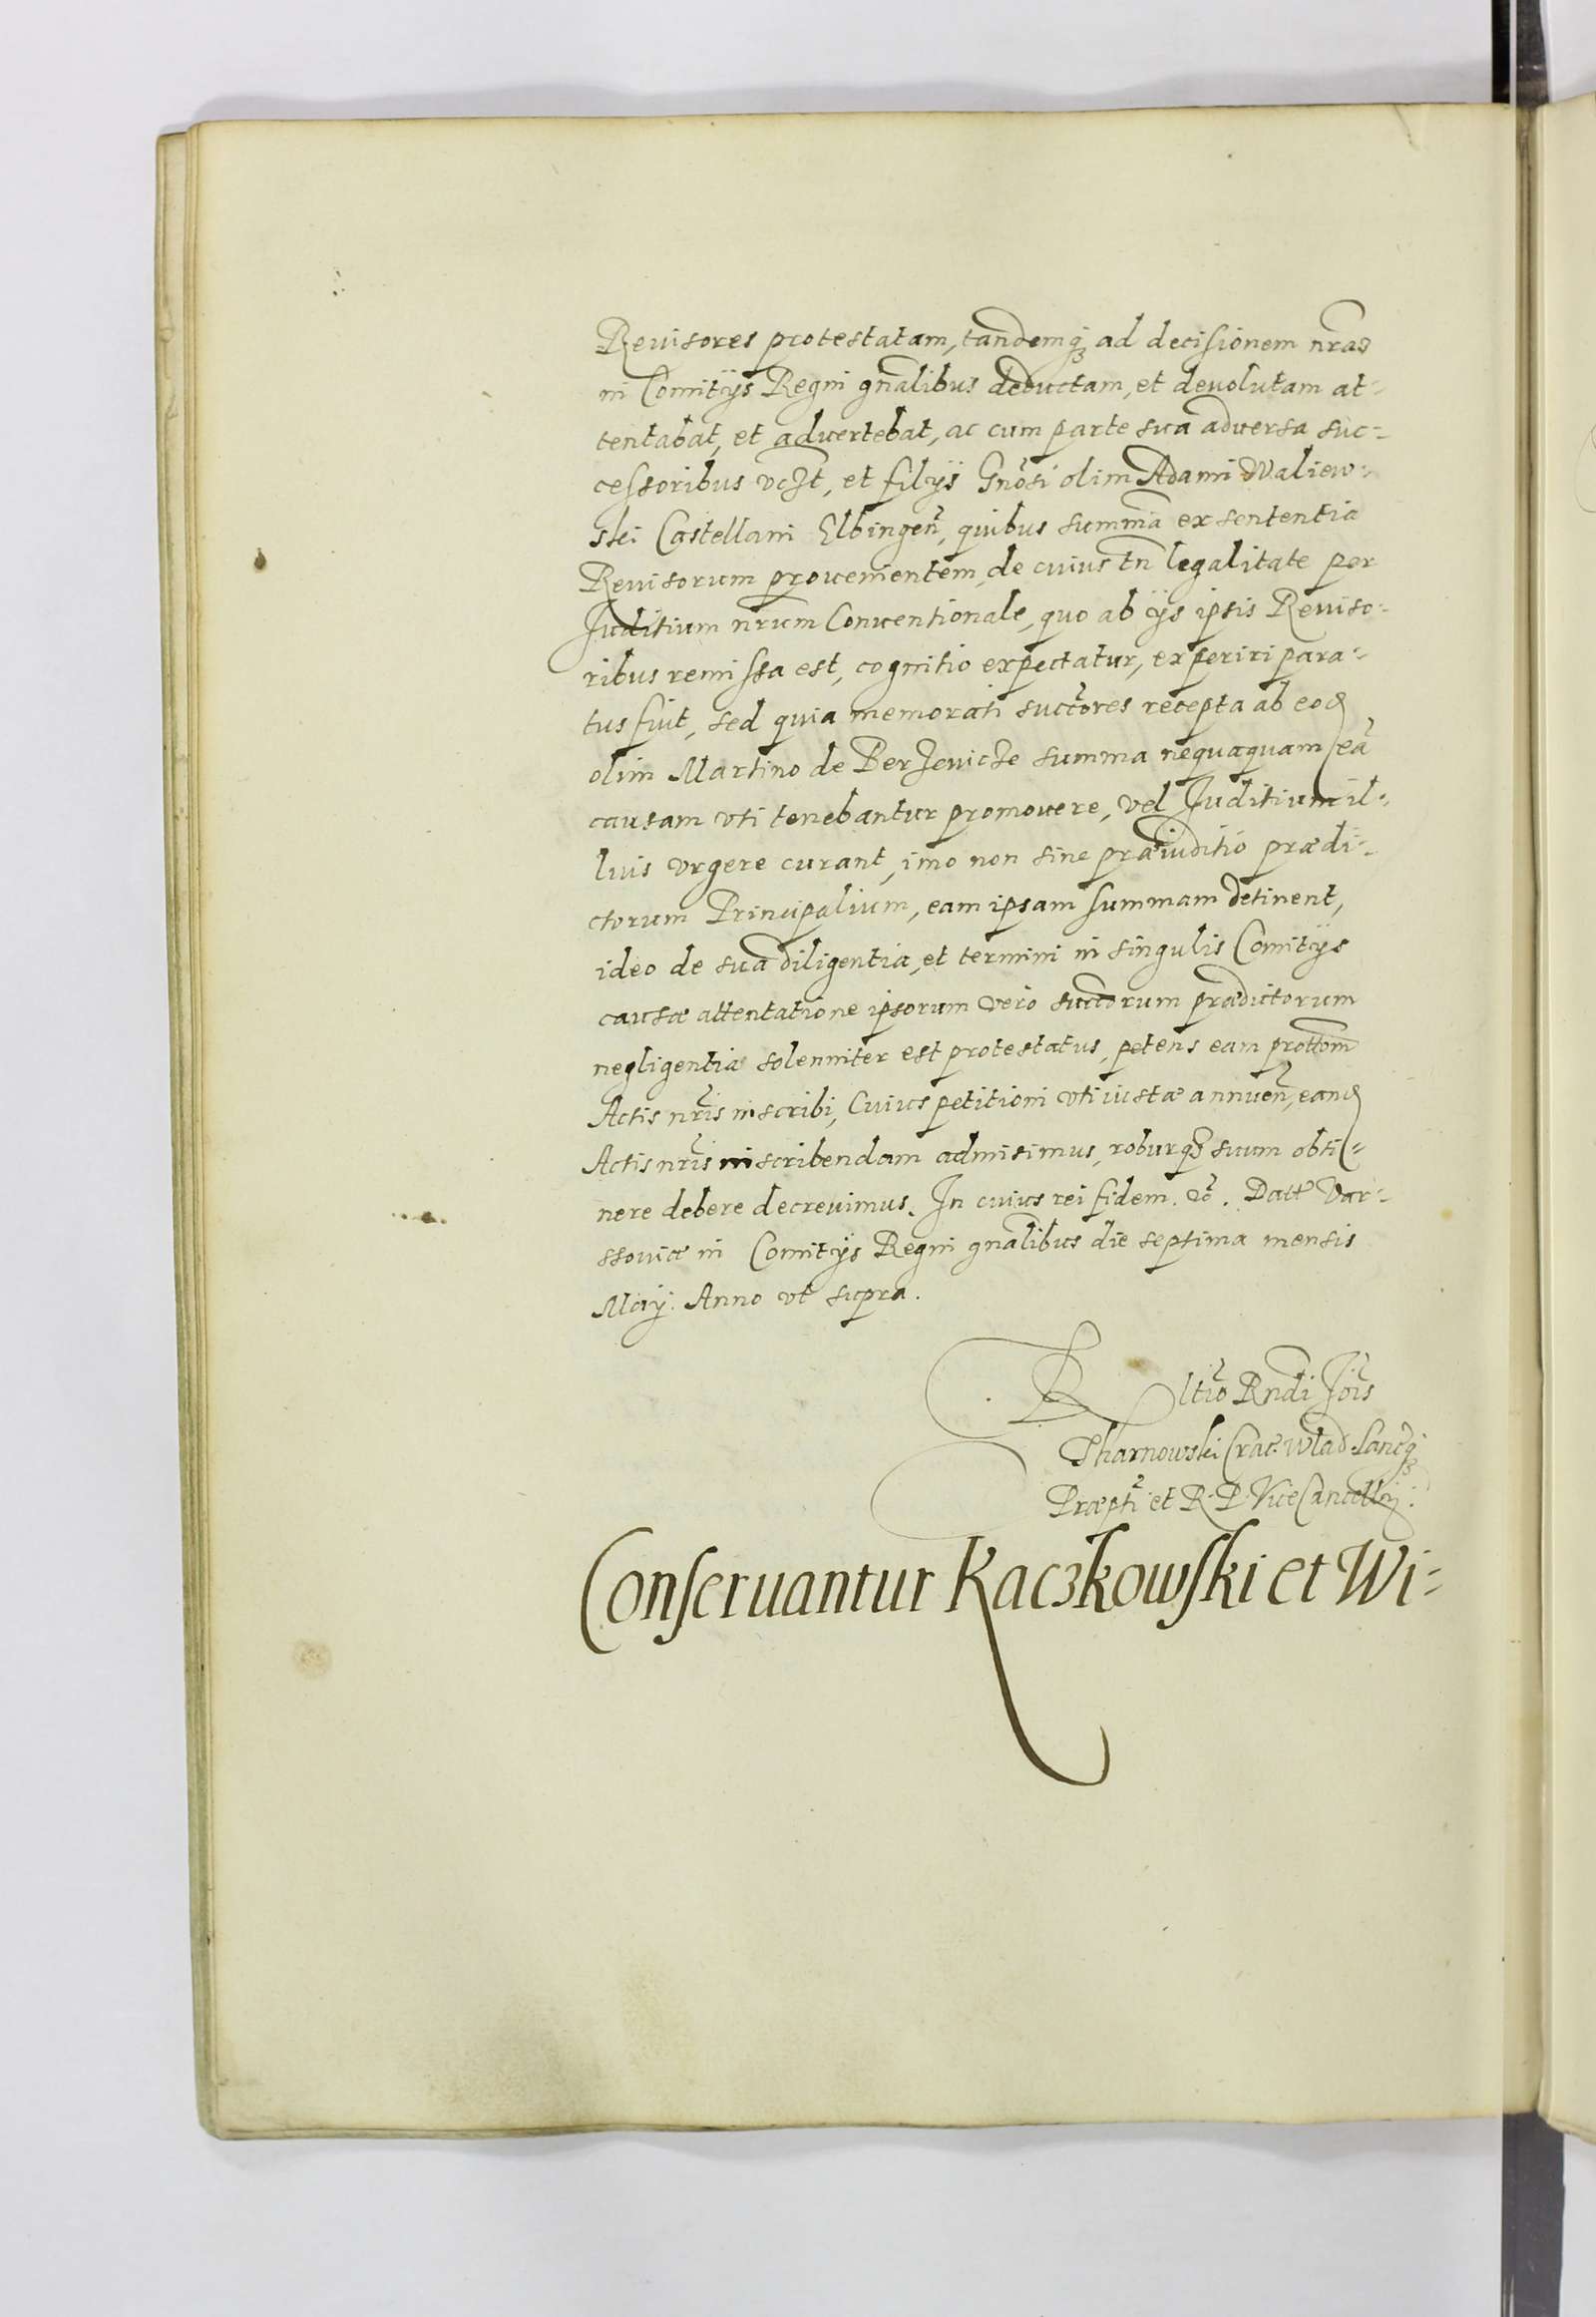 Revisores protestatam, tandemq₃ ad decisionem nrãm
in Comitijs Regni gnãlibus deductam, et devolutam at-
tentabat, et advertebat, ac cum parte sua adversa suc-
cessoribus vczt, et filijs Gnõsi olim Adami Waliew-
ski Castellani Elbingeñ, quibus summã ex sententia
Revisorum provenientem, de cuius tñ legalitate per
Juditium nrũm Conventionale, quo ab ijs ipsis Reviso-
ribus remissa est, cognitio expectatur, experiri para-
tus fuit, sed quia memorati succõres recepta ab eod
olim Martino de Berzevicze summa nequaquam eã
causam uti tenebantur promovere, vel Juditium il-
lius vrgere curant, imo non sine præiuditio prædi-
ctorum Principalium, eam ipsam summam detinent,
ideo de sua diligentia, et termini in singulis Comitijs
causæ attentatione ipsorum vero succõrum prædictorum
negligentia solenniter est protestatus, petens eam prottõm
Actis nrĩs inscribi, Cuius petitioni uti iustæ annueñ, eand
Actis nrĩs inscribendam admisimus, roburq₃ suum obti-
nere debere decrevimus. In cuius rei fidem &c̃. Datt Var-
ssoviæ in Comitijs Regni gnãlibus die septima mensis
Maij. Anno ut supra.
Rltĩo Rndi Joĩs
Tharnowski Crac̃. Wlad. Lancq₃
Præpti et R. P. ViceCancellrij.
Conservantur Kaczkowski et Wi-